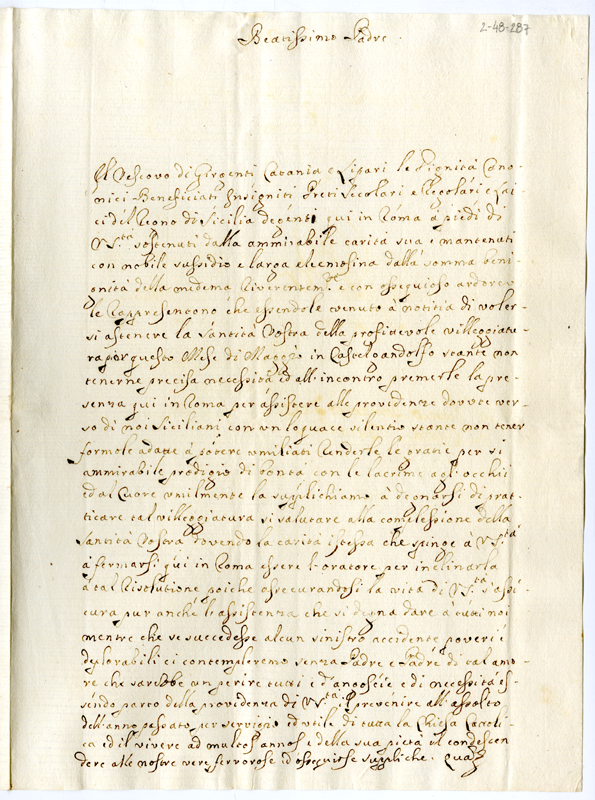 2-48-287
Beatissimo Padre.
Il Vescovo di Girgenti Catania e Lipari le Dignità Cano-
nici Beneficiati Insigniti Preti Secolari e Regolari e Lai-
ci del Regno di Sicilia degenti qui in Roma a piedi di
V. S.tà sostenuti dalla ammirabile carità sua e mantenuti
con nobile sussidio e larga elemosina dalla somma beni-
gnità della medema Riverentem.te e con ossequioso ardore
le rappresentono che essendole venuto à notitia di voler-
si astenere la Santità Vostra della profidevole villeggiatu-
ra per questo Mese di Maggio in Castelgandolfo stante non
tenerne precisa necessità ed all'incontro premerle la pre-
senza qui in Roma per assistere alle providenze dovute ver-
so di noi Siciliani con un loquace silentio stante non tener
formole adatte à potere umiliati renderle le gratie per si
ammirabile prodigio di bontà con le lacrime agl'occhii
ed al Cuore umilmente la supplichiamo à degnarsi di prat-
ticare tal villeggiatura si salutare alla complessione della
Santità Vostra dovendo la carità istessa che spinge à V. S.tà
à fermarsi qui in Roma essere l'oratore per inclinarla
à tal Risolutione poiche assecurandosi la vita di V. S.tà s'assi-
cura pur anche l'assistenza che si degna dare à tutti noi
mentre che se succedesse alcun sinistro accidente poveri e
deplorabili ci contempleremo senza Padre e Padre di tal amo-
re che sarebbe un perire tutti d'angoscie e di necessità es-
sendo parto della providenza di V. S.tà il prevenire all'assolto
dell'anno passato per servigio ed utile di tutta la Chiesa Cattoli-
ca ed il vivere ad multos annos e della sua pietà il condescen-
dere alle nostre vere ferrorose ed ossequiose suppliche. Qua